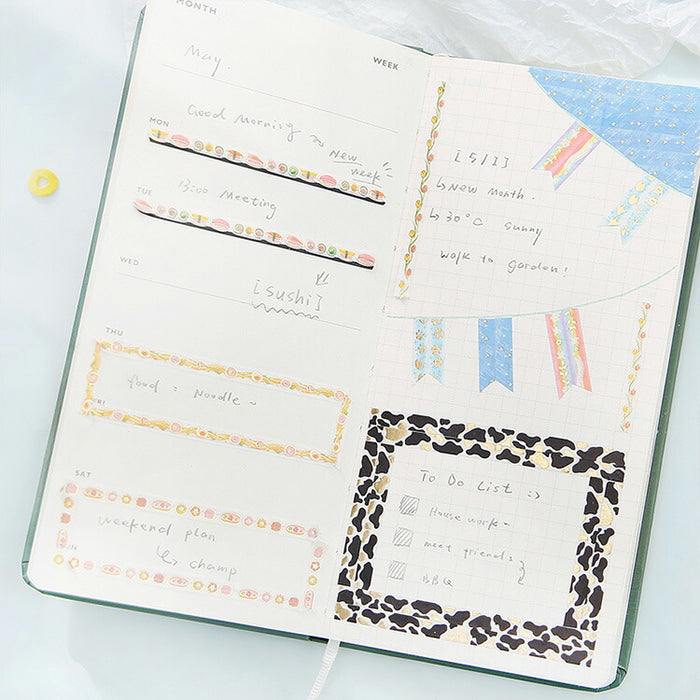 MONTH
May.
WEEK
MON
Good Morning ~
New
week
TUE
13:00 Meeting
WED
[sushi]
THU
food : Noodle ~
FRI
SAT
weekend plan
SUN
↳ champ
[5/1]
↳ New month.
↳ 30°C sunny
walk to garden!
To Do List :)
House work~
meet friends
BBQ